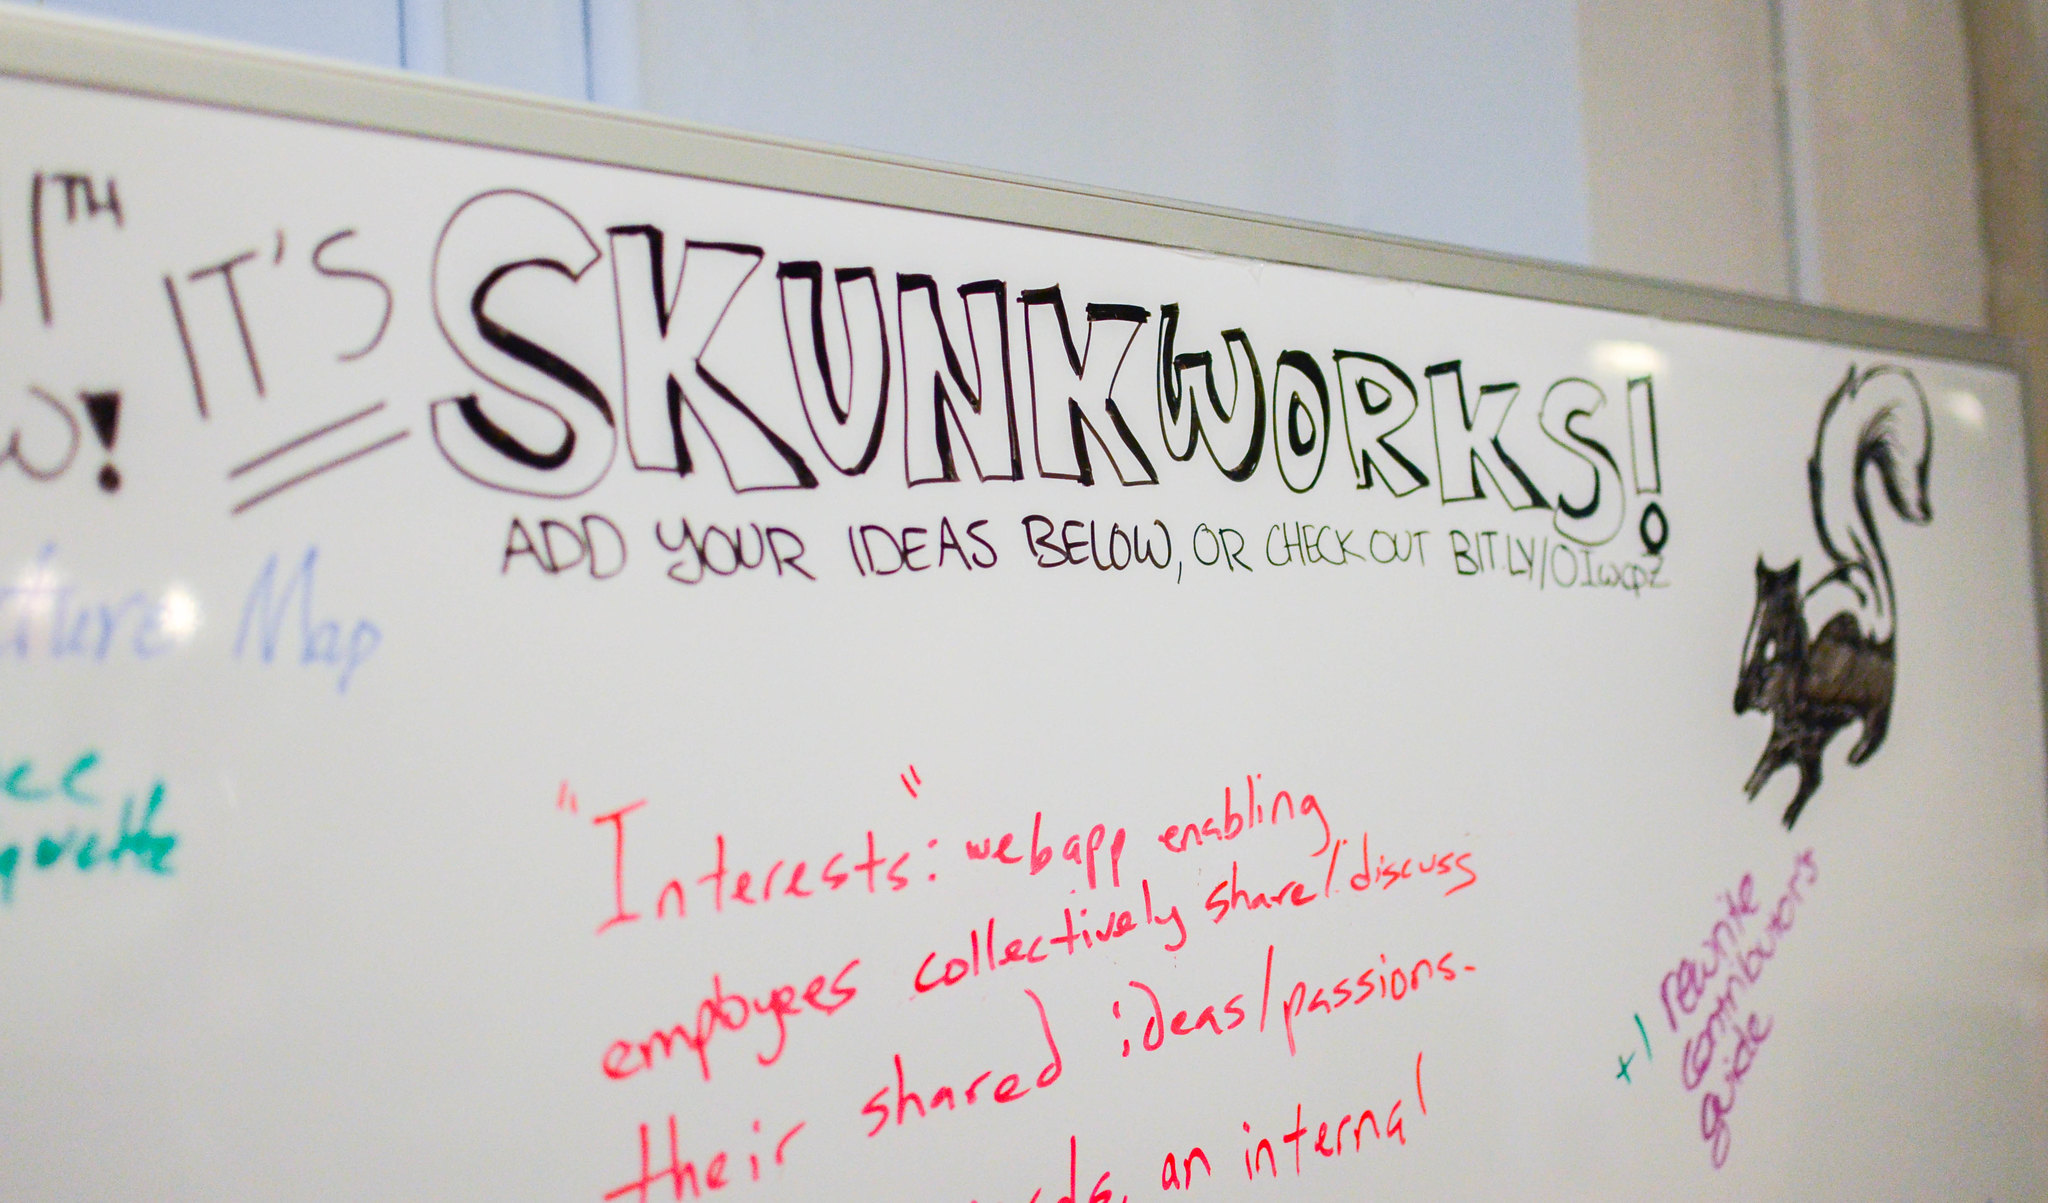 1TH
IT'S SKUNKWORKS!
ADD YOUR IDEAS BELOW, OR CHECK OUT BIT.LY/OIwxpz
Map
"Interests": webapp enabling
employees collectively share/discuss
their shared ideas/passions.
an internal
+1 rewrite
contributor's
guide